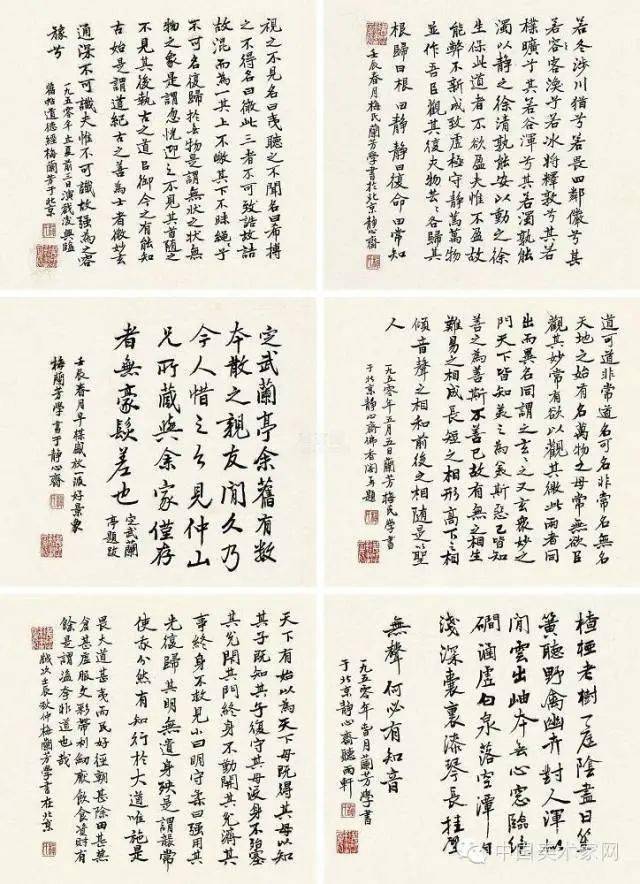 視之不見名曰夷聽之不聞名曰希搏
之不得名曰微此三者不可致詰故詰
故混而為一其上不皦其下不昧繩繩兮
不可名復歸於無物是謂無狀之狀無
物之象是謂忽恍迎之不見其首隨之
不見其後執古之道以御今之有能知
古始是謂道紀古之善為士者微妙玄
通深不可識夫惟不可識故強為之容
豫兮
一九五〇年立夏前三日演戲後興臨
舊帖道德經梅蘭芳于北京
若冬涉川猶兮若畏四鄰儼兮其
若容容渙兮若冰將釋敦兮其若
樸曠兮其若谷渾兮其若濁孰能
濁以靜之徐清孰能安以動之徐
生保此道者不欲盈夫惟不盈故
能蔽不新成致虛極守靜篤萬物
並作吾以觀其復夫物芸芸各歸其
根歸曰根曰靜靜曰復命曰常知
壬辰春月梅氏蘭芳學書於北京靜心齋
定武蘭亭余舊有數
本散之親友間久乃
令人惜之今見仲山
兄所藏與余家僅存
者無豪髮差也
定武蘭
亭題跋
壬辰春月早樣盛放一派好景象
梅蘭芳學書于靜心齋
道可道非常道名可名非常名無名
天地之始有名萬物之母常無欲以
觀其妙常有欲以觀其徼此兩者同
出而異名同謂之玄玄之又玄眾妙之
門天下皆知美之為美斯惡已皆知
善之為善斯不善已故有無之相生
難易之相成長短之相形高下之相
傾音聲之相和前後之相隨是以聖
人
一九五〇年五月五日蘭芳梅氏學書
于北京靜心齋佛香閣並題
天下有始以為天下母既得其母以知
其子既知其子復守其母沒身不殆塞
其兌閉其門終身不勤開其兌濟其
事終身不救見小曰明守柔曰強用其
光復歸其明無遺身殃是謂襲常
使我介然有知行於大道唯施是
畏大道甚夷而民好徑朝甚除田甚蕪
倉甚虛服文彩帶利劍厭飲食資財有
餘是謂盜夸非道也哉
歲次壬辰秋仲梅蘭芳學書在北京
楂枒老樹下庭陰盡日葉
簧聽野禽幽卉對人渾似
閒雲出岫本無心窗臨繞
磵涵虛白泉落空潭自
淺深囊裏漆琴長挂壁
無聲何必有知音
一九五〇年當月蘭芳學書
于北京靜心齋聽雨軒
中国美术家网